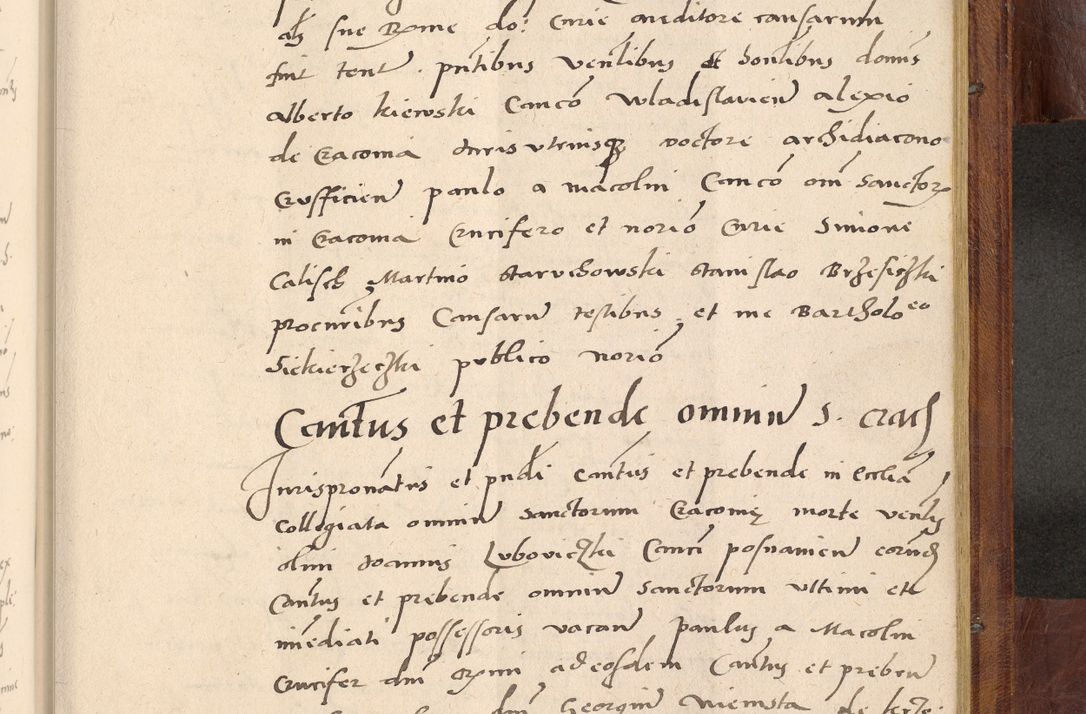 sue Rxme do: Curie auditore causarum
fuit tent. pntibus venlibus et Honlibus domis
alberto kiewski Canco Wladislavien alexio
de Cracovia Juris utriusq doctore archidiacono
Crusficien paulo a macolin Canco om Sanctor
in Cracovia Crucifero et norio Curie Simone
Calisch Martino Staruchowski Stanislao Brzesiczki
procuribus Causaru testibus et me Bartholoeo
Siekierzeczki publico norio
Cantus et prebende omniu S. Crac
Jurispronatus et pndi Cantus et prebende in Ecclia
Collegiata omniu Sanctorum Cracovię morte venlis
olim Joannis Luboviczki Canci posnanien eorund
Cantus et prebende omniu Sanctorum ultimi et
imediati possessoris vacan Paulus a Macolin
Crucifer dni Rxmi ad eosdem Cantus et preben
dm Georgiu Niemsta de